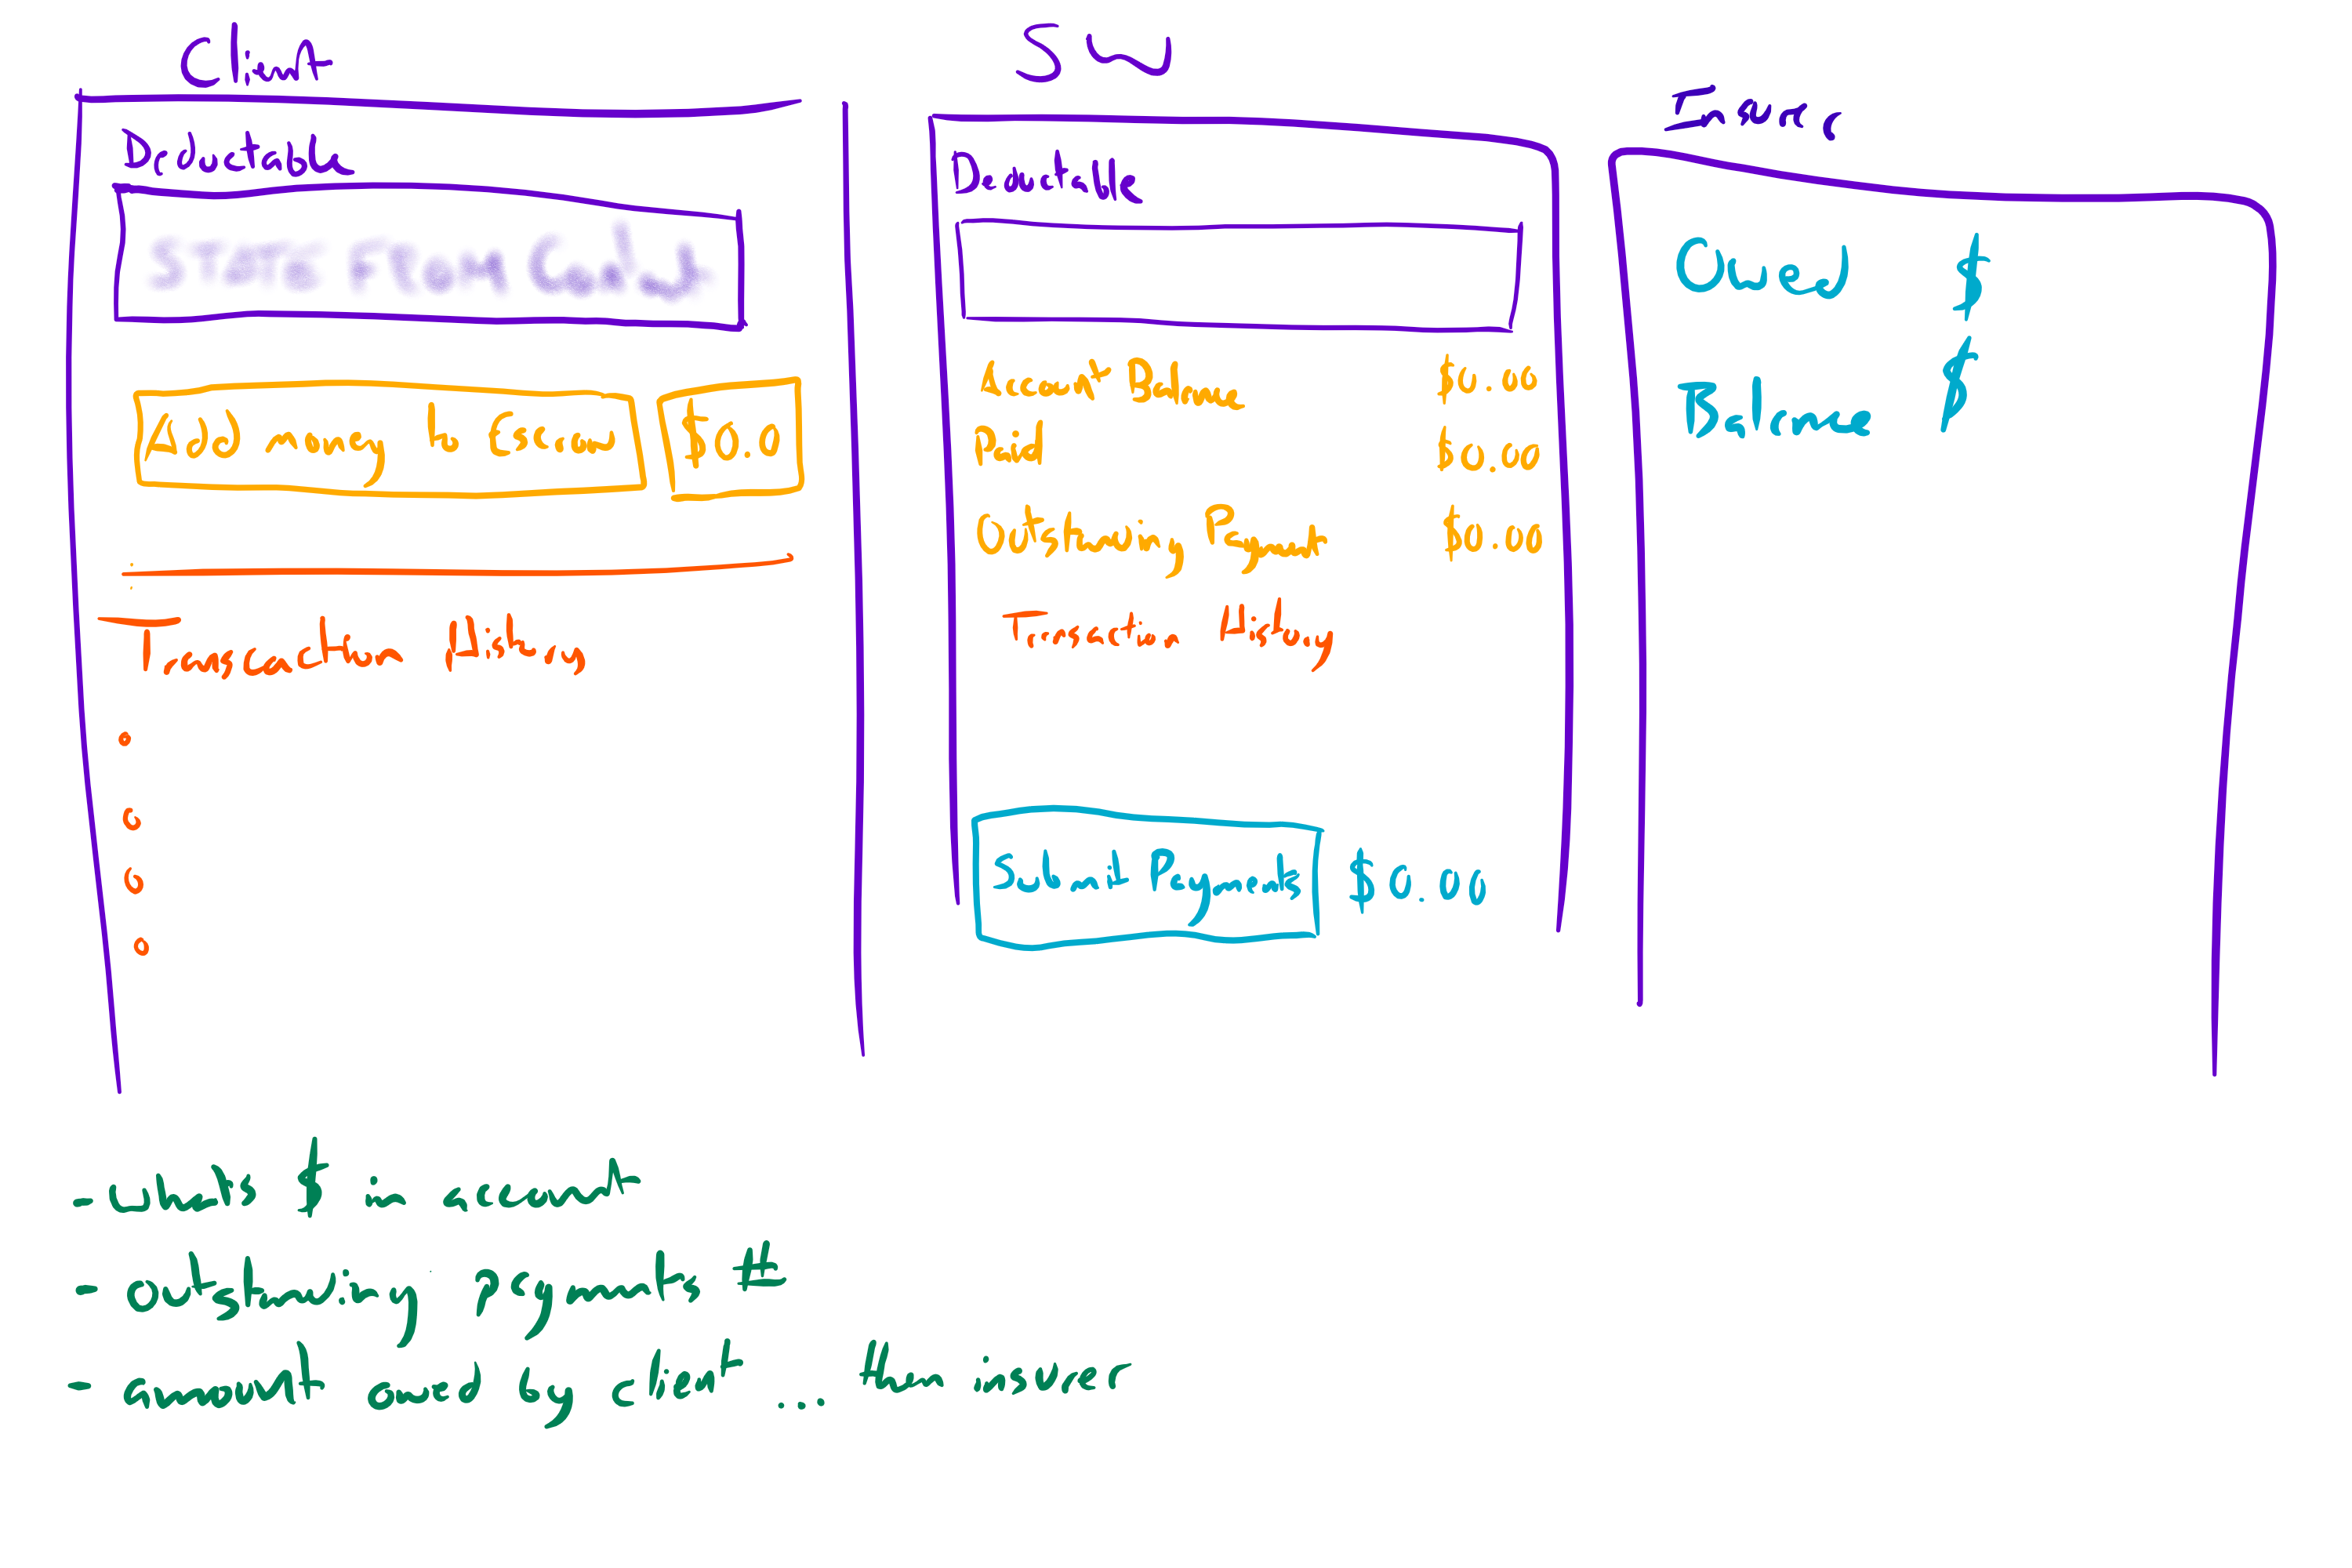 Client
Deductable
STATE FROM
Add money to Escrow $0.0
Transaction History
SW
Deductable
Account Balance $0.00
Paid $0.00
Outstanding Payment $0.00
Transaction History
Submit Payments $0.00
Insurer
Owed $
Balance $
- whats $ in account
- outstanding payments #
- amount owed by client ... then insurer